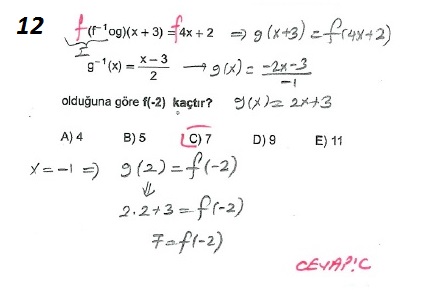 12
f(f⁻¹og)(x + 3) = f4x + 2 ⇒ g(x+3) = f(4x+2)
I
g⁻¹(x) = (x − 3)/2 → g(x) = (−2x−3)/(−1)
olduğuna göre f(-2) kaçtır? g(x) = 2x+3
A) 4 B) 5 C) 7 D) 9 E) 11
x = −1 ⇒ g(2) = f(−2)
⇓
2.2+3 = f(−2)
7 = f(−2)
CEVAP:C